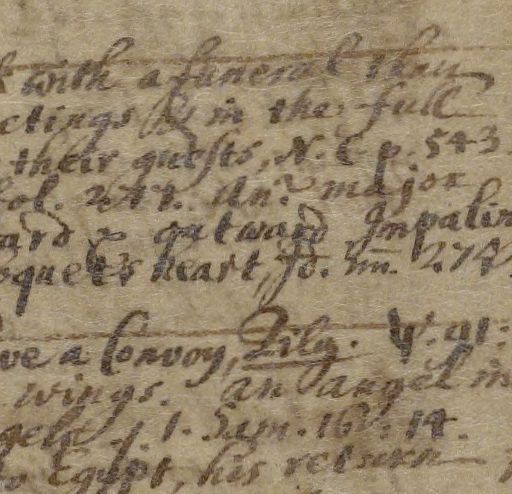 with a funeral than
ctings in the full
their guests, N. C p. 543
fol. 277. An: major
ard & outward Impalin
quet's heart, fo. nn. 274.
ve a Convoy, Zily.
wings. an angel in
gels. j 1. Sam. 16: 14.
Egypt, his return